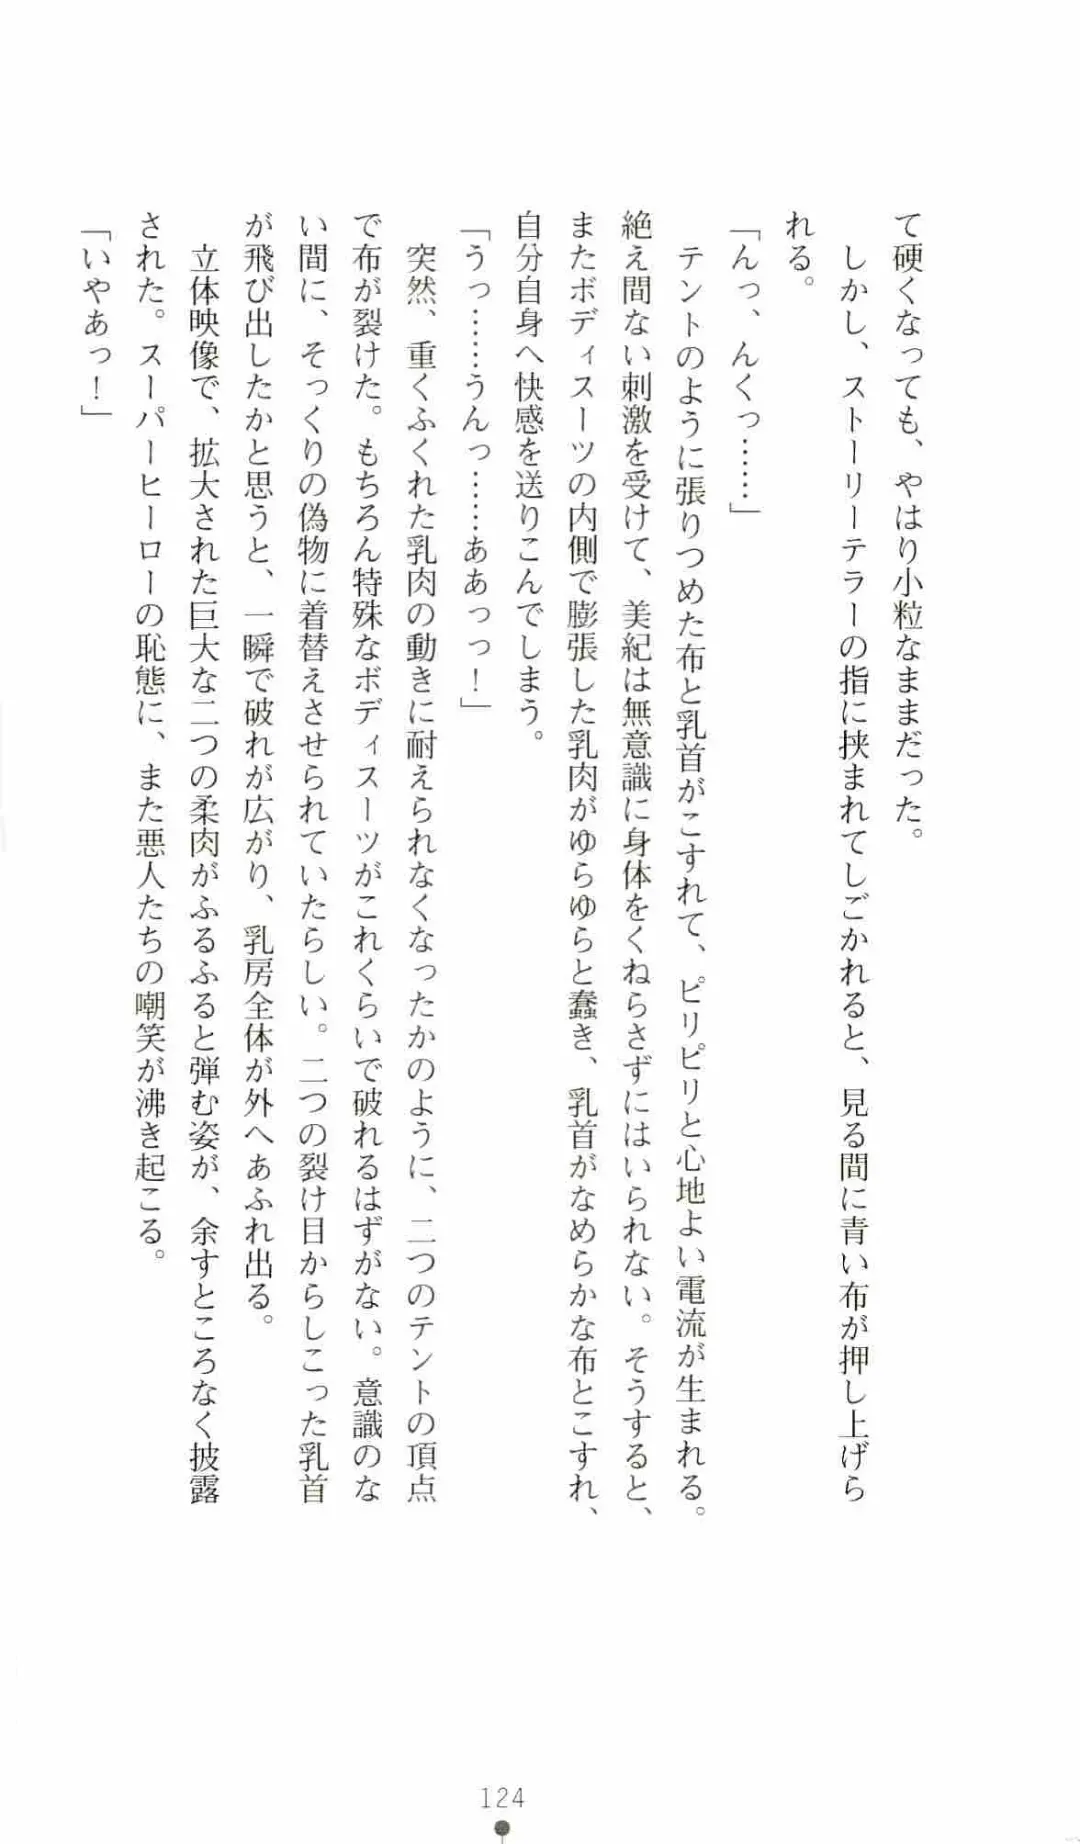 て硬くなっても、やはり小粒なままだった。
　しかし、ストーリーテラーの指に挟まれてしごかれると、見る間に青い布が押し上げら
れる。
「んっ、んくっ……」
　テントのように張りつめた布と乳首がこすれて、ピリピリと心地よい電流が生まれる。
絶え間ない刺激を受けて、美紀は無意識に身体をくねらさずにはいられない。そうすると、
またボディスーツの内側で膨張した乳肉がゆらゆらと蠢き、乳首がなめらかな布とこすれ、
自分自身へ快感を送りこんでしまう。
「うっ……うんっ……ああっっ！」
　突然、重くふくれた乳肉の動きに耐えられなくなったかのように、二つのテントの頂点
で布が裂けた。もちろん特殊なボディスーツがこれくらいで破れるはずがない。意識のな
い間に、そっくりの偽物に着替えさせられていたらしい。二つの裂け目からしこった乳首
が飛び出したかと思うと、一瞬で破れが広がり、乳房全体が外へあふれ出る。
　立体映像で、拡大された巨大な二つの柔肉がふるふると弾む姿が、余すところなく披露
された。スーパーヒーローの恥態に、また悪人たちの嘲笑が沸き起こる。
「いやあっ！」
124